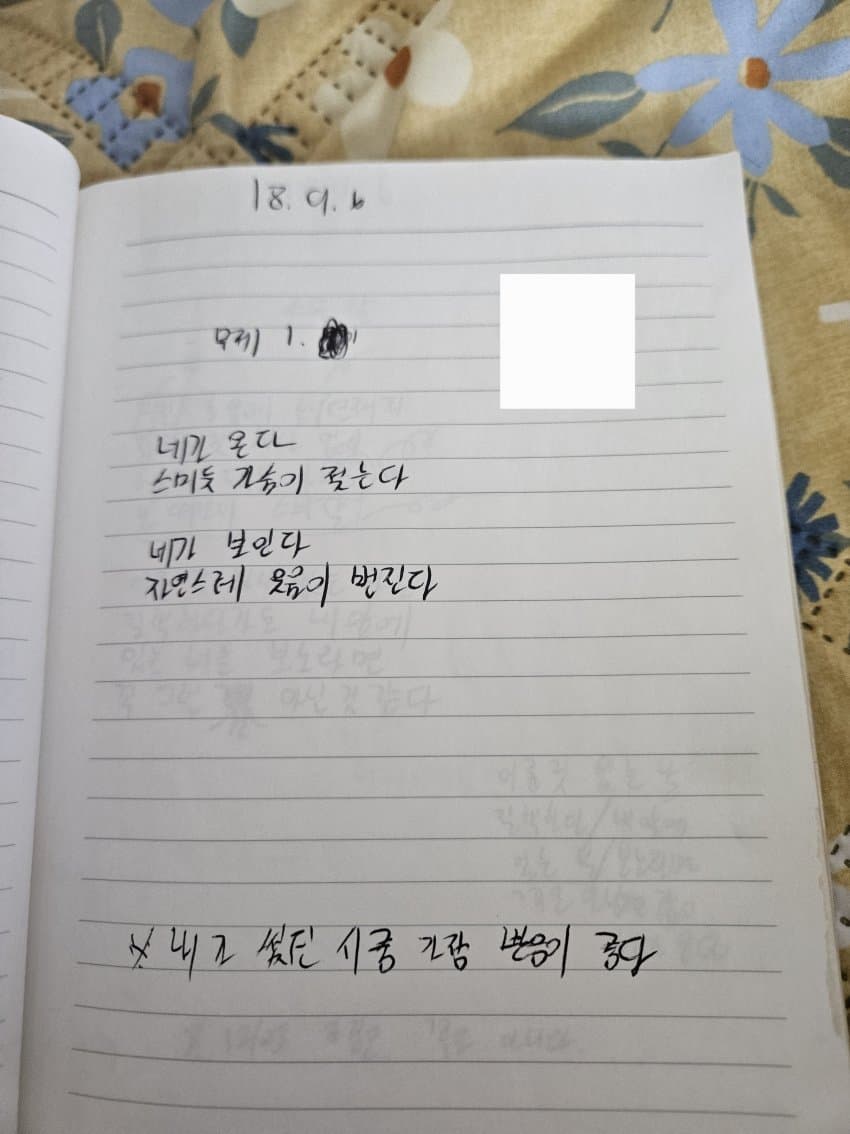 18. 9.
무제 1.
네가 온다
스미듯 가슴이 젖는다
네가 보인다
자연스레 웃음이 번진다
※ 내가 썼던 시중 가장 반응이 좋다